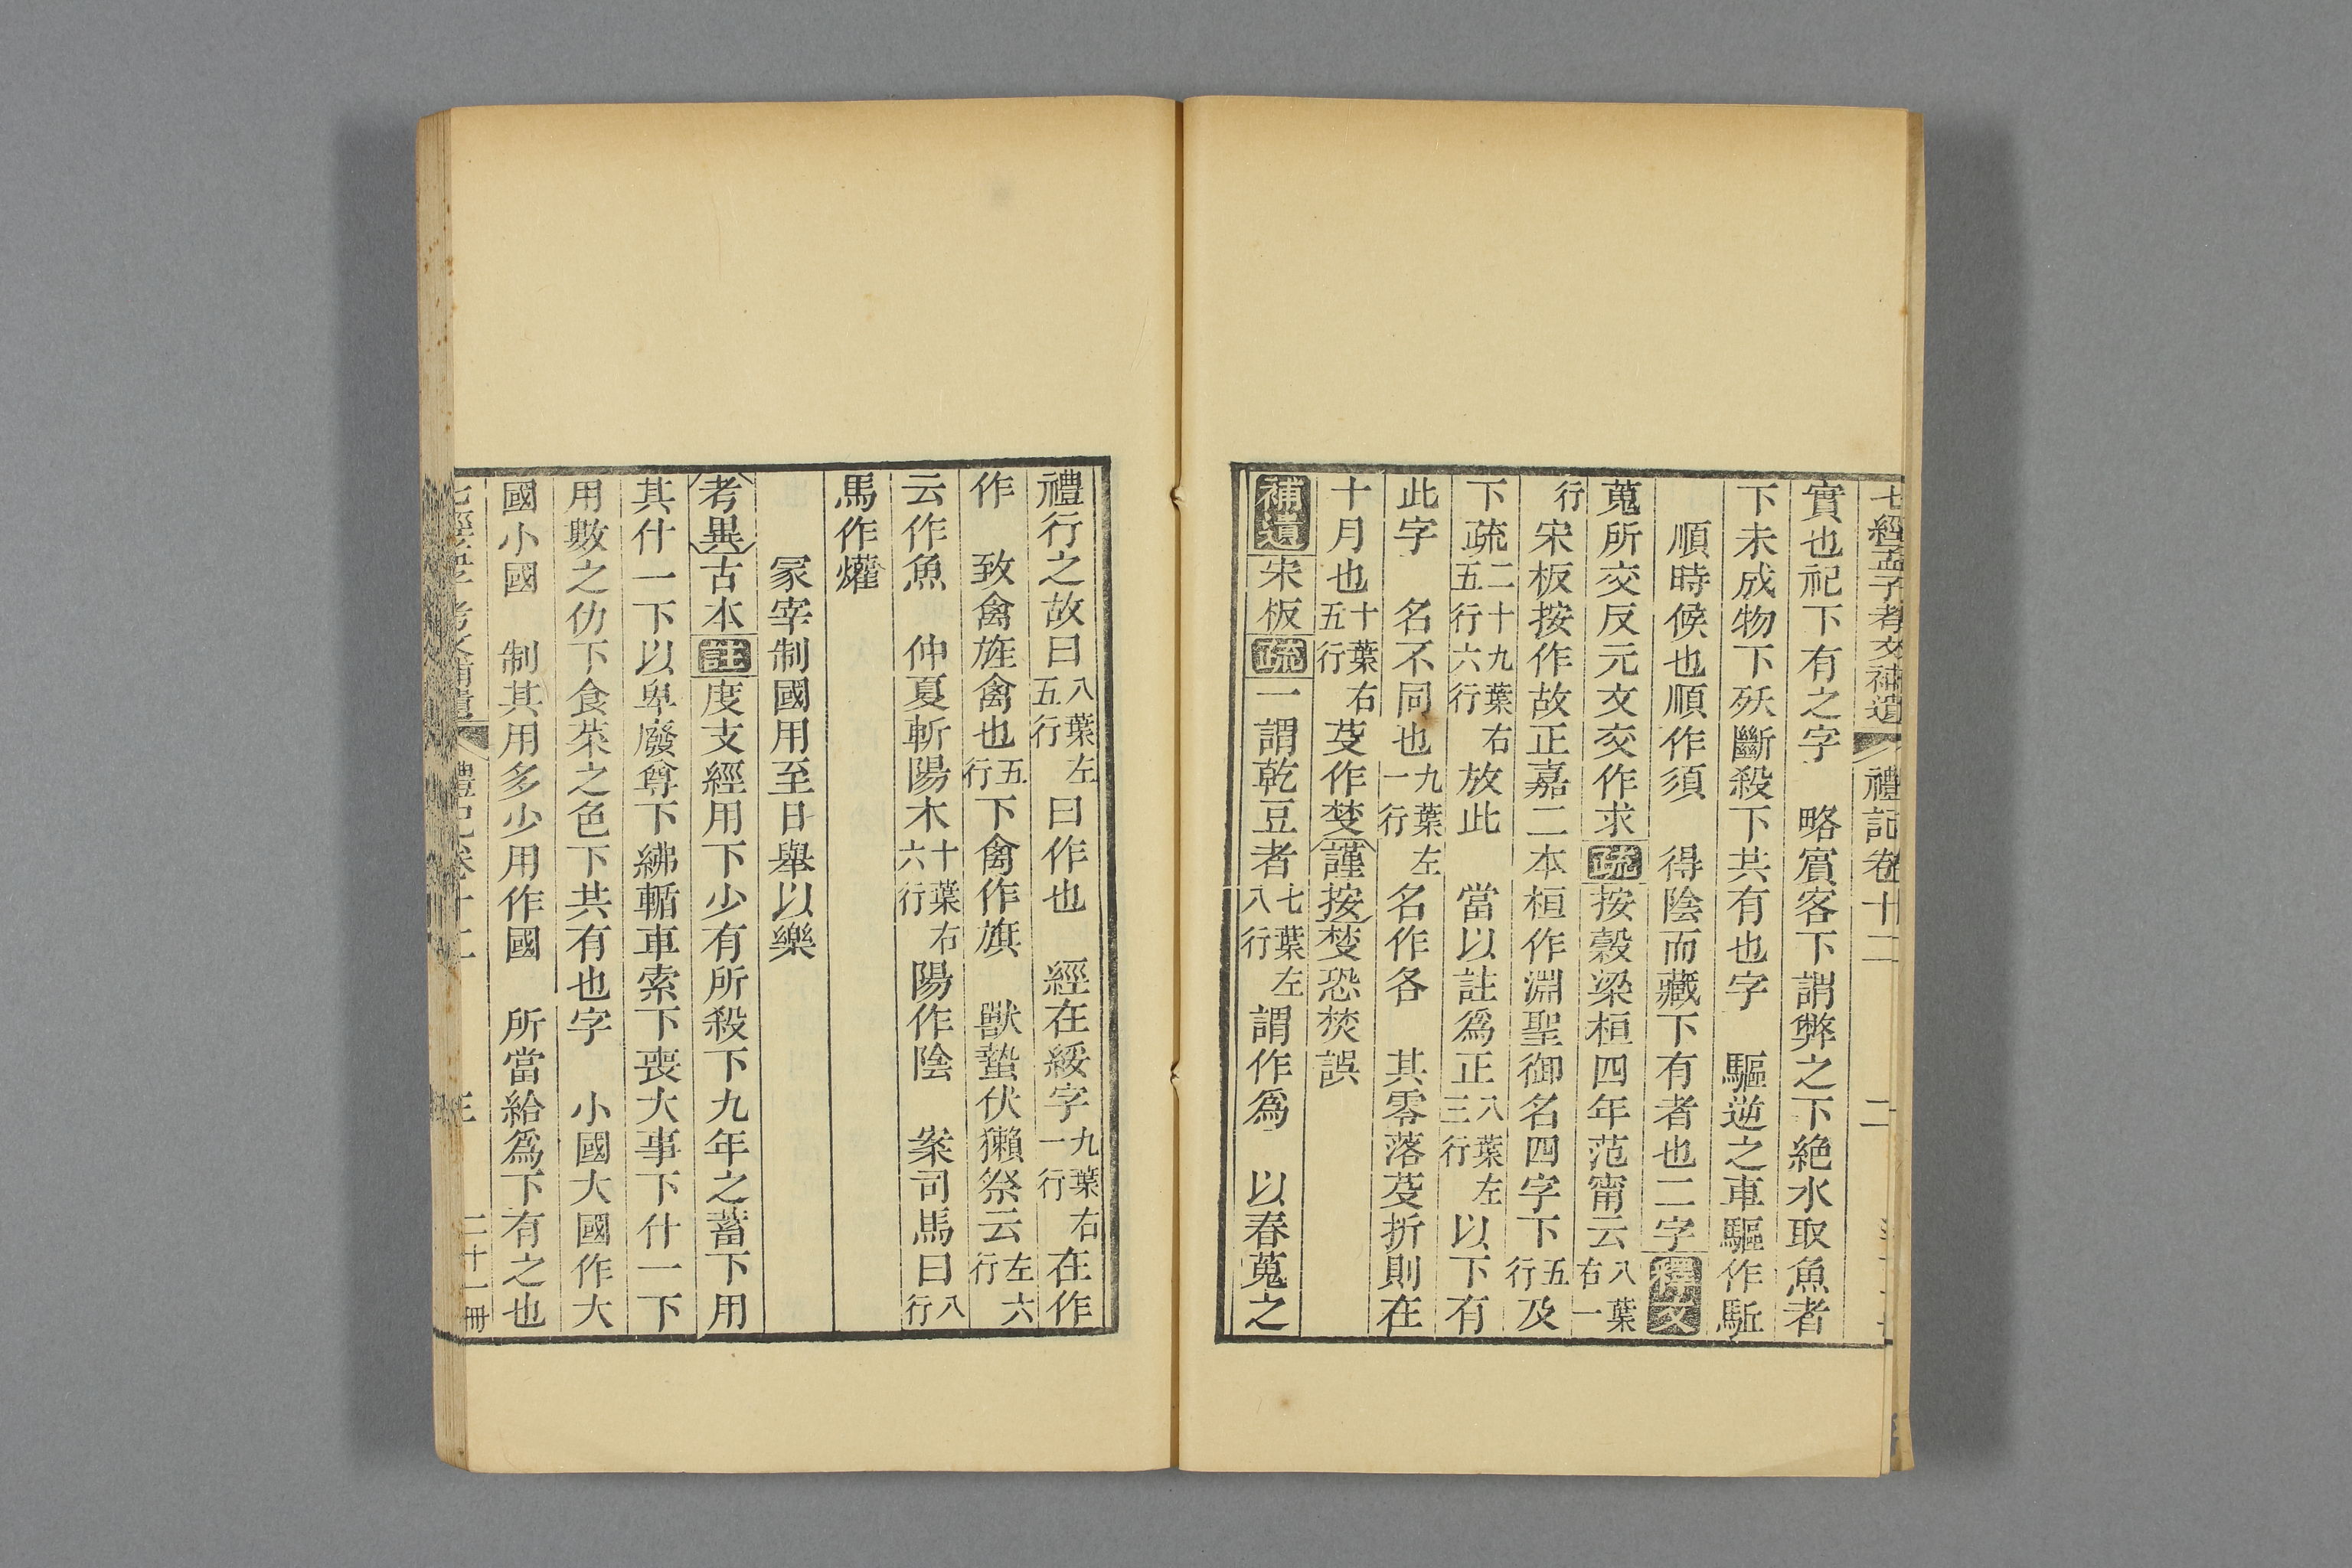 七經孟子考文補遺 禮記卷十二 二
實也祀下有之字 略賓客下謂弊之下絶水取魚者
下未成物下殀斷殺下共有也字 驅逆之車驅作駈
順時候也順作須 得陰而藏下有者也二字釋文
蒐所交反元文交作求疏按穀梁桓四年范甯云八葉右一
行宋板按作故正嘉二本桓作淵聖御名四字下五行及
下疏二十九葉右五行六行放此 當以註爲正八葉左三行以下有
此字 名不同也九葉左一行名作各 其零落芟折則在
十月也十葉右五行芟作椘謹按椘恐焚誤
補遺宋板疏一謂乾豆者七葉左八行謂作爲 以春蒐之
禮行之故曰八葉左五行曰作也 經在綏字九葉右一行在作
作 致禽旌禽也五行下禽作旗 獸蟄伏獺祭云左六行
云作魚 仲夏斬陽木十葉右六行陽作陰 案司馬曰八行
馬作爟
冢宰制國用至日舉以樂
考異古本註度支經用下少有所殺下九年之蓄下用
其什一下以卑廢尊下紼輴車索下喪大事下什一下
用數之仂下食菜之色下共有也字 小國大國作大
國小國 制其用多少用作國 所當給爲下有之也
禮記卷十二 三 二十一冊